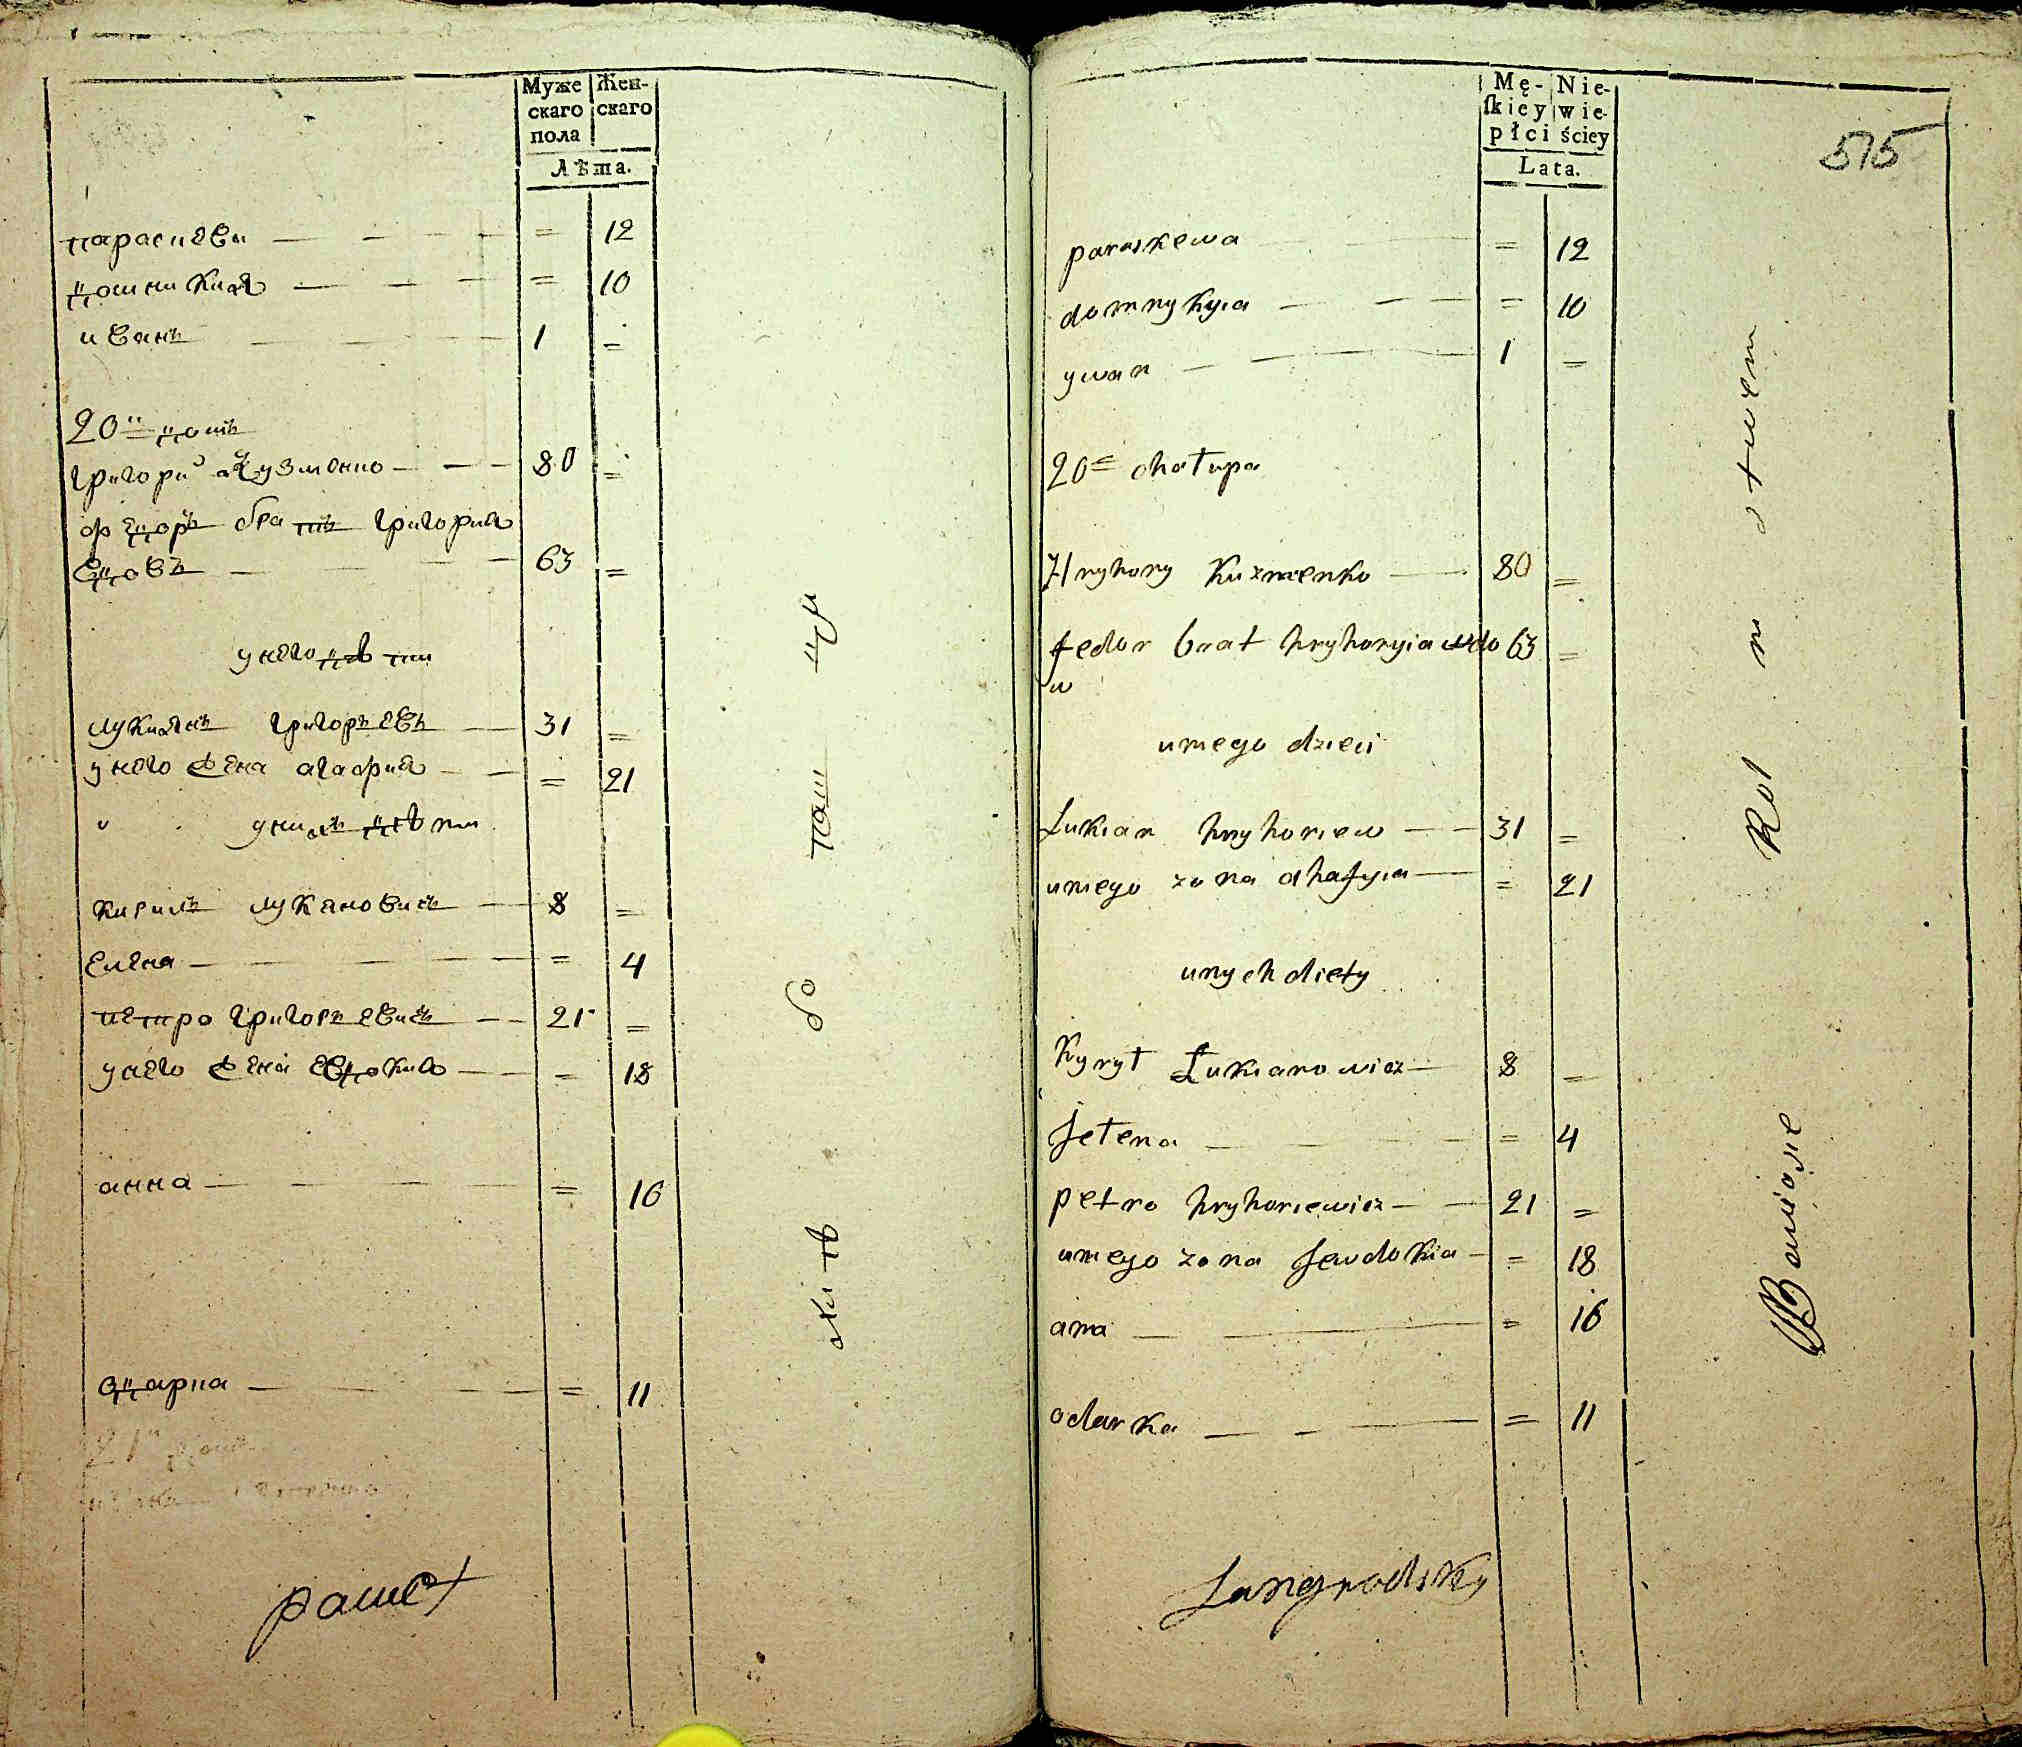 Муже Жен-
скаго скаго
пола
Лѣта.
параскева — — — = 12
домникия — — — = 10
иванъ — — — 1 =
20й домъ
григорий кузменко — — — 80 =
федоръ братъ григория
вдовъ — — — 63 =
у него дѣти
лукиянъ григорьевъ — 31 =
у него жена агафия — — = 21
у нихъ дѣти
кирилъ лукяновичъ — 8 =
елена — — — — = 4
петро григорьевичъ — — 21 =
у него жена евдокия — — = 18
анна — — — — = 16
одарка — — — — = 11
21й домъ
Mę- Nie-
ſkiey wie-
płci ściey
Lata.
515
paraskewa — — — = 12
domnykyia — — — = 10
ywan — — — 1 =
20= chałupa
Hryhory Kuzmenko — — 80 =
fedor brat hryhoryia wdo 63 =
w
uniego dzieci
Łukian hryhoriew — — 31 =
uniego zona ahafyia — = 21
unych diety
Kyrył Łukianowicz — 8 =
Jełena — — — = 4
petro hryhoriewicz — — 21 =
uniego zona Jewdokia — = 18
anna — — — = 16
odarka — — — = 11
Langrodsky